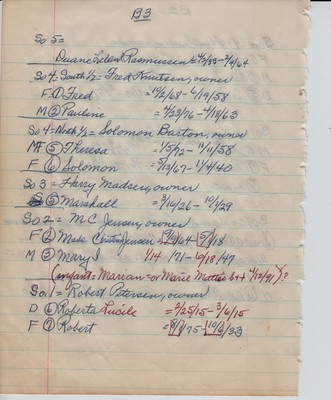 B3
So 5 =
Duane Leland Rasmussen = 4/7/63 - 7/9/64
So 4 = South 1/2 = Fred Knutsen, owner
F ① Fred = 10/2/68 - 6/19/58
M ② Pauline = 4/23/76 - 4/18/63
So 4 = North 1/2 = Solomon Barton, owner
M ⑤ Theresa = 1/5/72 - 11/11/58
F ⑥ Solomon = 5/13/67 - 1/4/40
So 3 = Harry Madsen, owner
⑤ Marshall = 3/16/26 - 10/1/29
So 2 = M C Jensen, owner
F ② Mads Christian Jensen = /64 - 5/ /18
M ③ Mary I 1/14 /71 - 6/18/47
(infant = Marian = or Marie Mattie b + d 4/12/91)?
So 1 = Robert Petersen, owner
D ⑥ Roberta Lucile = 2/25/15 - 3/6/15
F ⑦ Robert = 8/ /75 - 10/6/33